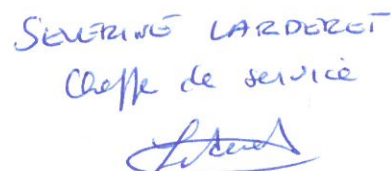 SEVERINE LARDERET
Cheffe de service